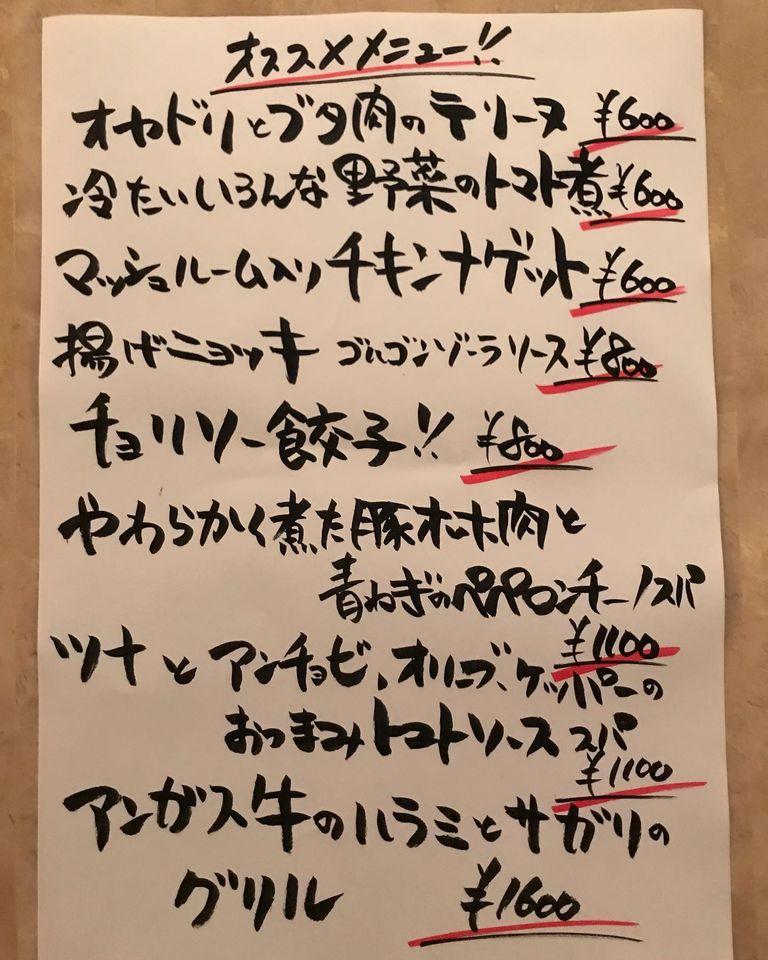 オススメメニュー!!
オヤドリとブタ肉のテリーヌ ¥600
冷たいいろんな野菜のトマト煮 ¥600
マッシュルーム入りチキンナゲット ¥600
揚げニョッキ ゴルゴンゾーラソース ¥800
チョリソー餃子!! ¥800
やわらかく煮た豚ホホ肉と
青ねぎのペペロンチーノスパ
¥1100
ツナとアンチョビ、オリーブ、ケッパーの
おつまみトマトソース スパ
¥1100
アンガス牛のハラミとサガリの
グリル ¥1600